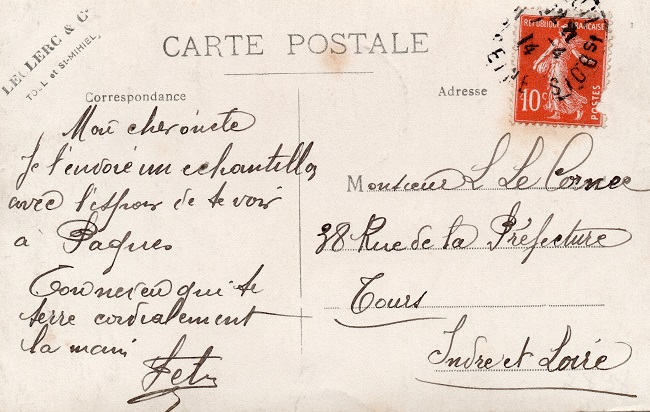 LECLERC & Cie
TOUL et St-MIHIEL
CARTE POSTALE
RÉPUBLIQUE FRANÇAISE
10c
POSTES
Correspondance
Mon cher oncle
Je t'envoie un echantillon
avec l'espoir de te voir
à Paques
Ton neveu qui te
serre cordialement
la main
Adresse
Monsieur L Le Cornec
38 Rue de la Préfecture
Tours
Indre et Loire